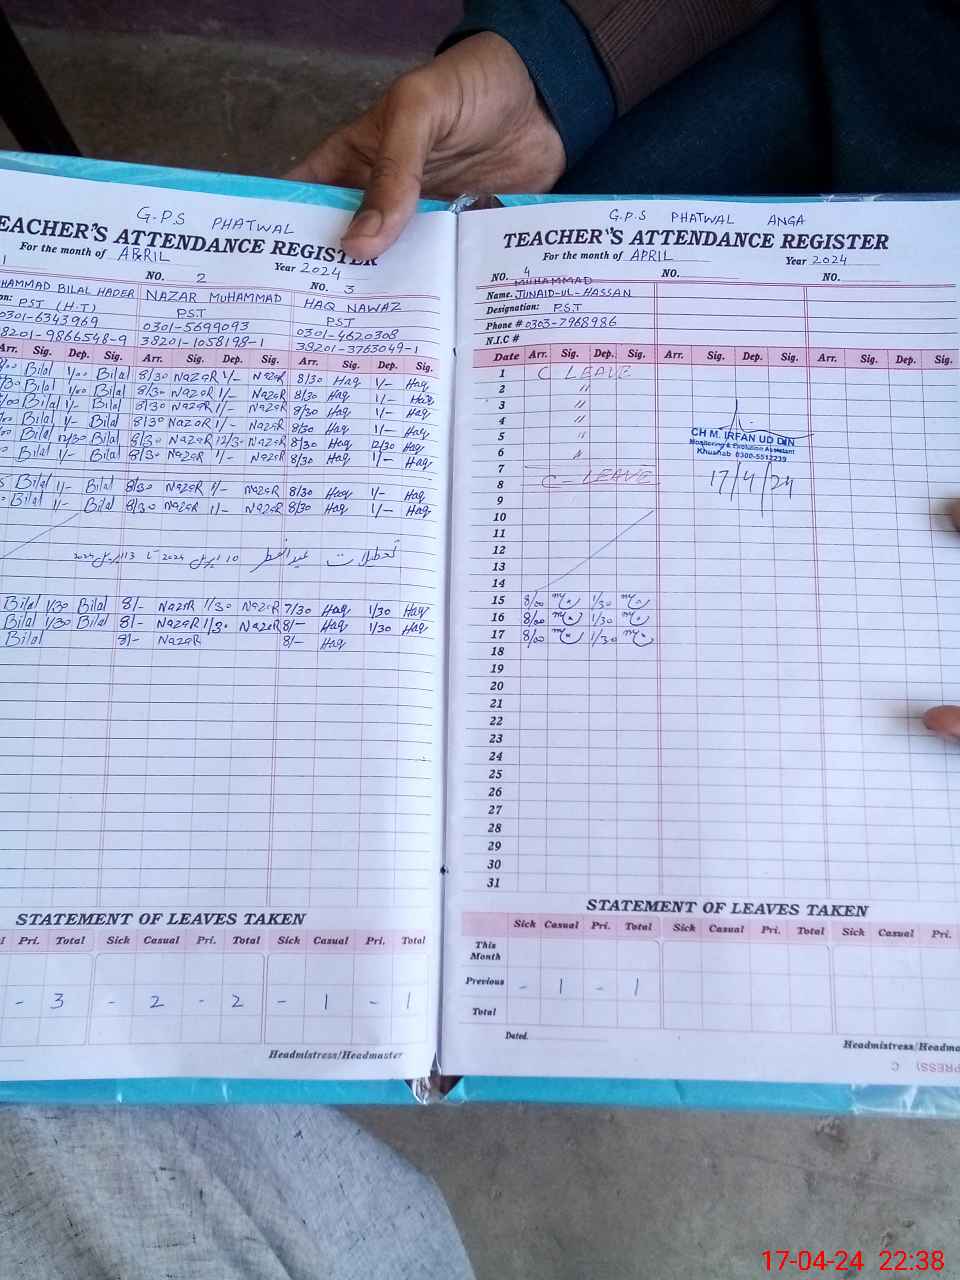 G.P.S PHATWAL
TEACHER'S ATTENDANCE REGISTER
For the month of APRIL Year 2024
1 NO. 2 NO. 3
HAMMAD BILAL HADER NAZAR MUHAMMAD HAQ NAWAZ
PST (H.T) P.S.T PST
0301-6343969 0301-5699093 0301-4620308
38201-9866548-9 38201-1058198-1 38201-3763049-1
Arr. Sig. Dep. Sig. Arr. Sig. Dep. Sig. Arr. Sig. Dep. Sig.
Bilal 1/00 Bilal 8/30 NazaR 1/- NazaR 8/30 Haq 1/- Haq
Bilal 1/00 Bilal 8/30 NazaR 1/- NazaR 8/30 Haq 1/- Haq
Bilal 1/- Bilal 8/30 NazaR 1/- NazaR 8/30 Haq 1/- Haq
Bilal 1/- Bilal 8/30 NazaR 1/- NazaR 8/30 Haq 1/- Haq
Bilal 12/30 Bilal 8/30 NazaR 12/30 NazaR 8/30 Haq 12/30 Haq
Bilal 1/- Bilal 8/30 NazaR 1/- NazaR 8/30 Haq 1/- Haq
Bilal 1/- Bilal 8/30 NazaR 1/- NazaR 8/30 Haq 1/- Haq
Bilal 1/- Bilal 8/30 NazaR 1/- NazaR 8/30 Haq 1/- Haq
تعطیلات عیدالفطر 10 اپریل 2024 تا 13 اپریل 2024
Bilal 1/30 Bilal 8/- NazaR 1/30 NazaR 7/30 Haq 1/30 Haq
Bilal 1/30 Bilal 8/- NazaR 1/30 NazaR 8/- Haq 1/30 Haq
Bilal 8/- NazaR 8/- Haq
STATEMENT OF LEAVES TAKEN
Pri. Total Sick Casual Pri. Total Sick Casual Pri. Total
- 3 - 2 - 2 - 1 - 1
Headmistress/Headmaster
G.P.S PHATWAL ANGA
TEACHER'S ATTENDANCE REGISTER
For the month of APRIL Year 2024
NO. 4 NO. NO.
MUHAMMAD
Name. JUNAID-UL-HASSAN
Designation: P.S.T
Phone # 0303-7968986
N.I.C #
Date Arr. Sig. Dep. Sig. Arr. Sig. Dep. Sig. Arr. Sig. Dep. Sig.
1 C LEAVE
2 "
3 "
4 "
5 "
6 "
7
8 C - LEAVE
9
10
11
12
13
14
15 8/00 1/30
16 8/00 1/30
17 8/00 1/30
18
19
20
21
22
23
24
25
26
27
28
29
30
31
CH M. IRFAN UD DIN
Monitoring & Evaluation Assistant
Khushab 0300-5512239
17/4/24
STATEMENT OF LEAVES TAKEN
Sick Casual Pri. Total Sick Casual Pri. Total Sick Casual Pri.
This Month
Previous - 1 - 1
Total
Dated.
Headmistress/Headma
PRESS) C
17-04-24 22:38